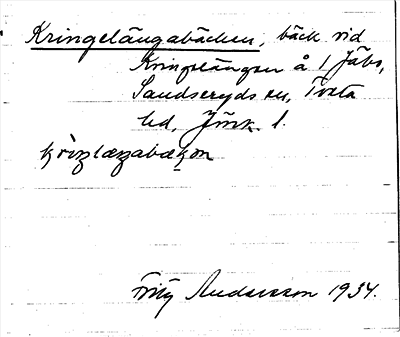 Kringelängabäcken, bäck vid
Kringelängen å 1 Jäbo,
Sandseryds sn, Tveta
hd, Jönk. l.
kriŋlæŋabækən
Fritz Andersson 1934.